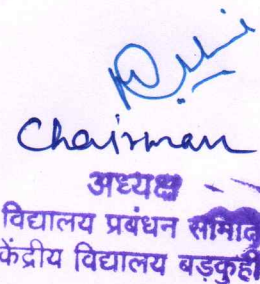 Chairman
अध्यक्ष
विद्यालय प्रबंधन समिति
केंद्रीय विद्यालय बड़कुही